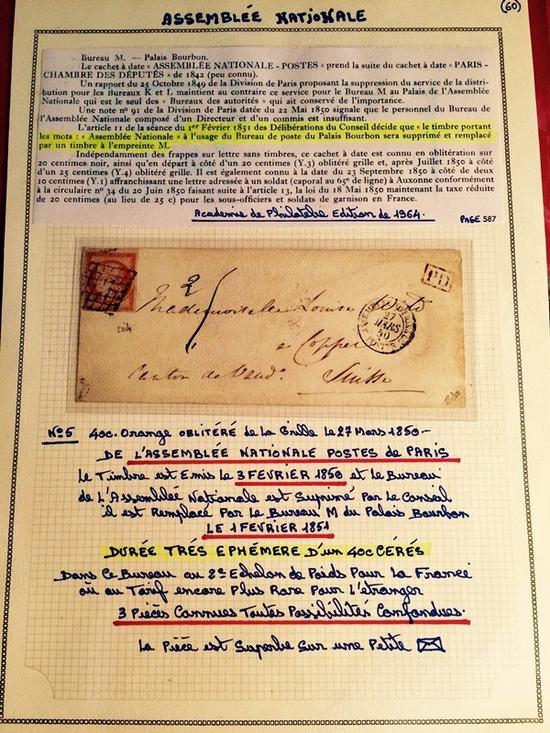 ASSEMBLÉE NATIONALE
60
Bureau M. — Palais Bourbon.
Le cachet à date « ASSEMBLÉE NATIONALE - POSTES » prend la suite du cachet à date « PARIS -
CHAMBRE DES DÉPUTÉS » de 1842 (peu connu).
Un rapport du 24 Octobre 1849 de la Division de Paris proposant la suppression du service de la distri-
bution pour les Bureaux K et L maintient au contraire ce service pour le Bureau M au Palais de l'Assemblée
Nationale qui est le seul des « Bureaux des autorités » qui ait conservé de l'importance.
Une note nº 91 de la Division de Paris datée du 22 Mai 1850 signale que le personnel du Bureau de
l'Assemblée Nationale composé d'un Directeur et d'un commis est insuffisant.
L'article 11 de la séance du 1er Février 1851 des Délibérations du Conseil décide que « le timbre portant
les mots : « Assemblée Nationale » à l'usage du Bureau de poste du Palais Bourbon sera supprimé et remplacé
par un timbre à l'empreinte M.
Indépendamment des frappes sur lettre sans timbres, ce cachet à date est connu en oblitération sur
20 centimes noir, ainsi qu'en départ à côté d'un 20 centimes (Y.3) oblitéré grille et, après Juillet 1850 à côté
d'un 25 centimes (Y.4) oblitéré grille. Il est également connu à la date du 23 Septembre 1850 à côté de deux
10 centimes (Y.1) affranchissant une lettre adressée à un soldat (caporal au 65e de ligne) à Auxonne conformément
à la circulaire nº 34 du 20 Juin 1850 faisant suite à l'article 13, la loi du 18 Mai 1850 maintenant la taxe réduite
de 20 centimes (au lieu de 25 c) pour les sous-officiers et soldats de garnison en France.
Academie de Philatelie Edition de 1964.
PAGE 587
PD
2
Mademoiselle Louise
27
MARS
50
à Coppet
Canton de Vaud. Suisse
Nº5 40c. Orange OBLITÉRÉ de La Grille Le 27 Mars 1850-
DE L'ASSEMBLÉE NATIONALE POSTES DE PARIS
Le Timbre est Emis Le 3 FEVRIER 1850 et Le Bureau
de L'Assemblée Nationale est Suprimé Par Le Conseil
il est Remplacé Par Le Bureau M du Palais Bourbon
LE 1 FEVRIER 1851
DURÉE TRÉS EPHÉMERE D'un 40c CÉRÉS
Dans Ce Bureau au 2e Echelon de Poids Pour La France
où au Tarif encore Plus Rare Pour L'étranger
3 Pièces Connues Toutes Possibilités Confondues.
La Pièce est Superbe Sur une Petite